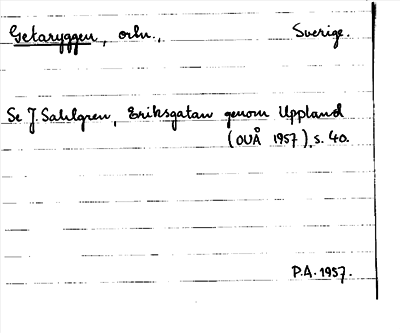 Getaryggen, ortn., Sverige.
Se J. Sahlgren, Eriksgatan genom Uppland
(OUÅ 1957), s. 40.
P.A. 1957.